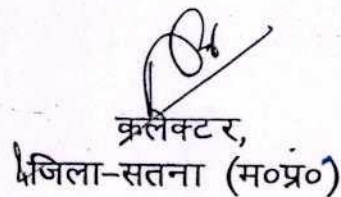 क्रलेक्टर,
जिला-सतना (म०प्र०)